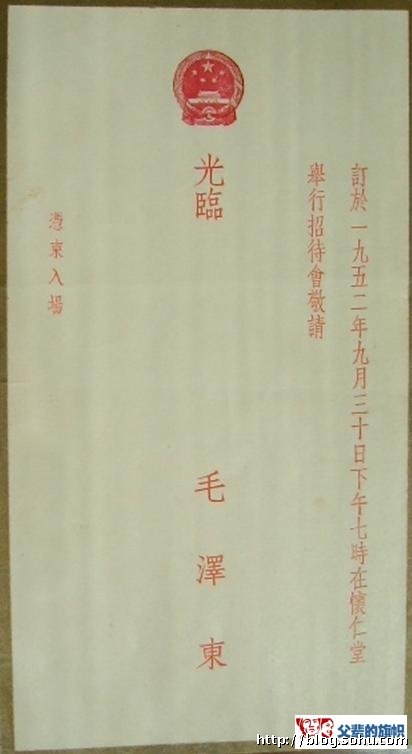 訂於一九五二年九月三十日下午七時在懷仁堂
舉行招待會敬請
光臨
毛澤東
憑柬入場
http://blog.sohu.com/
父辈的旗帜